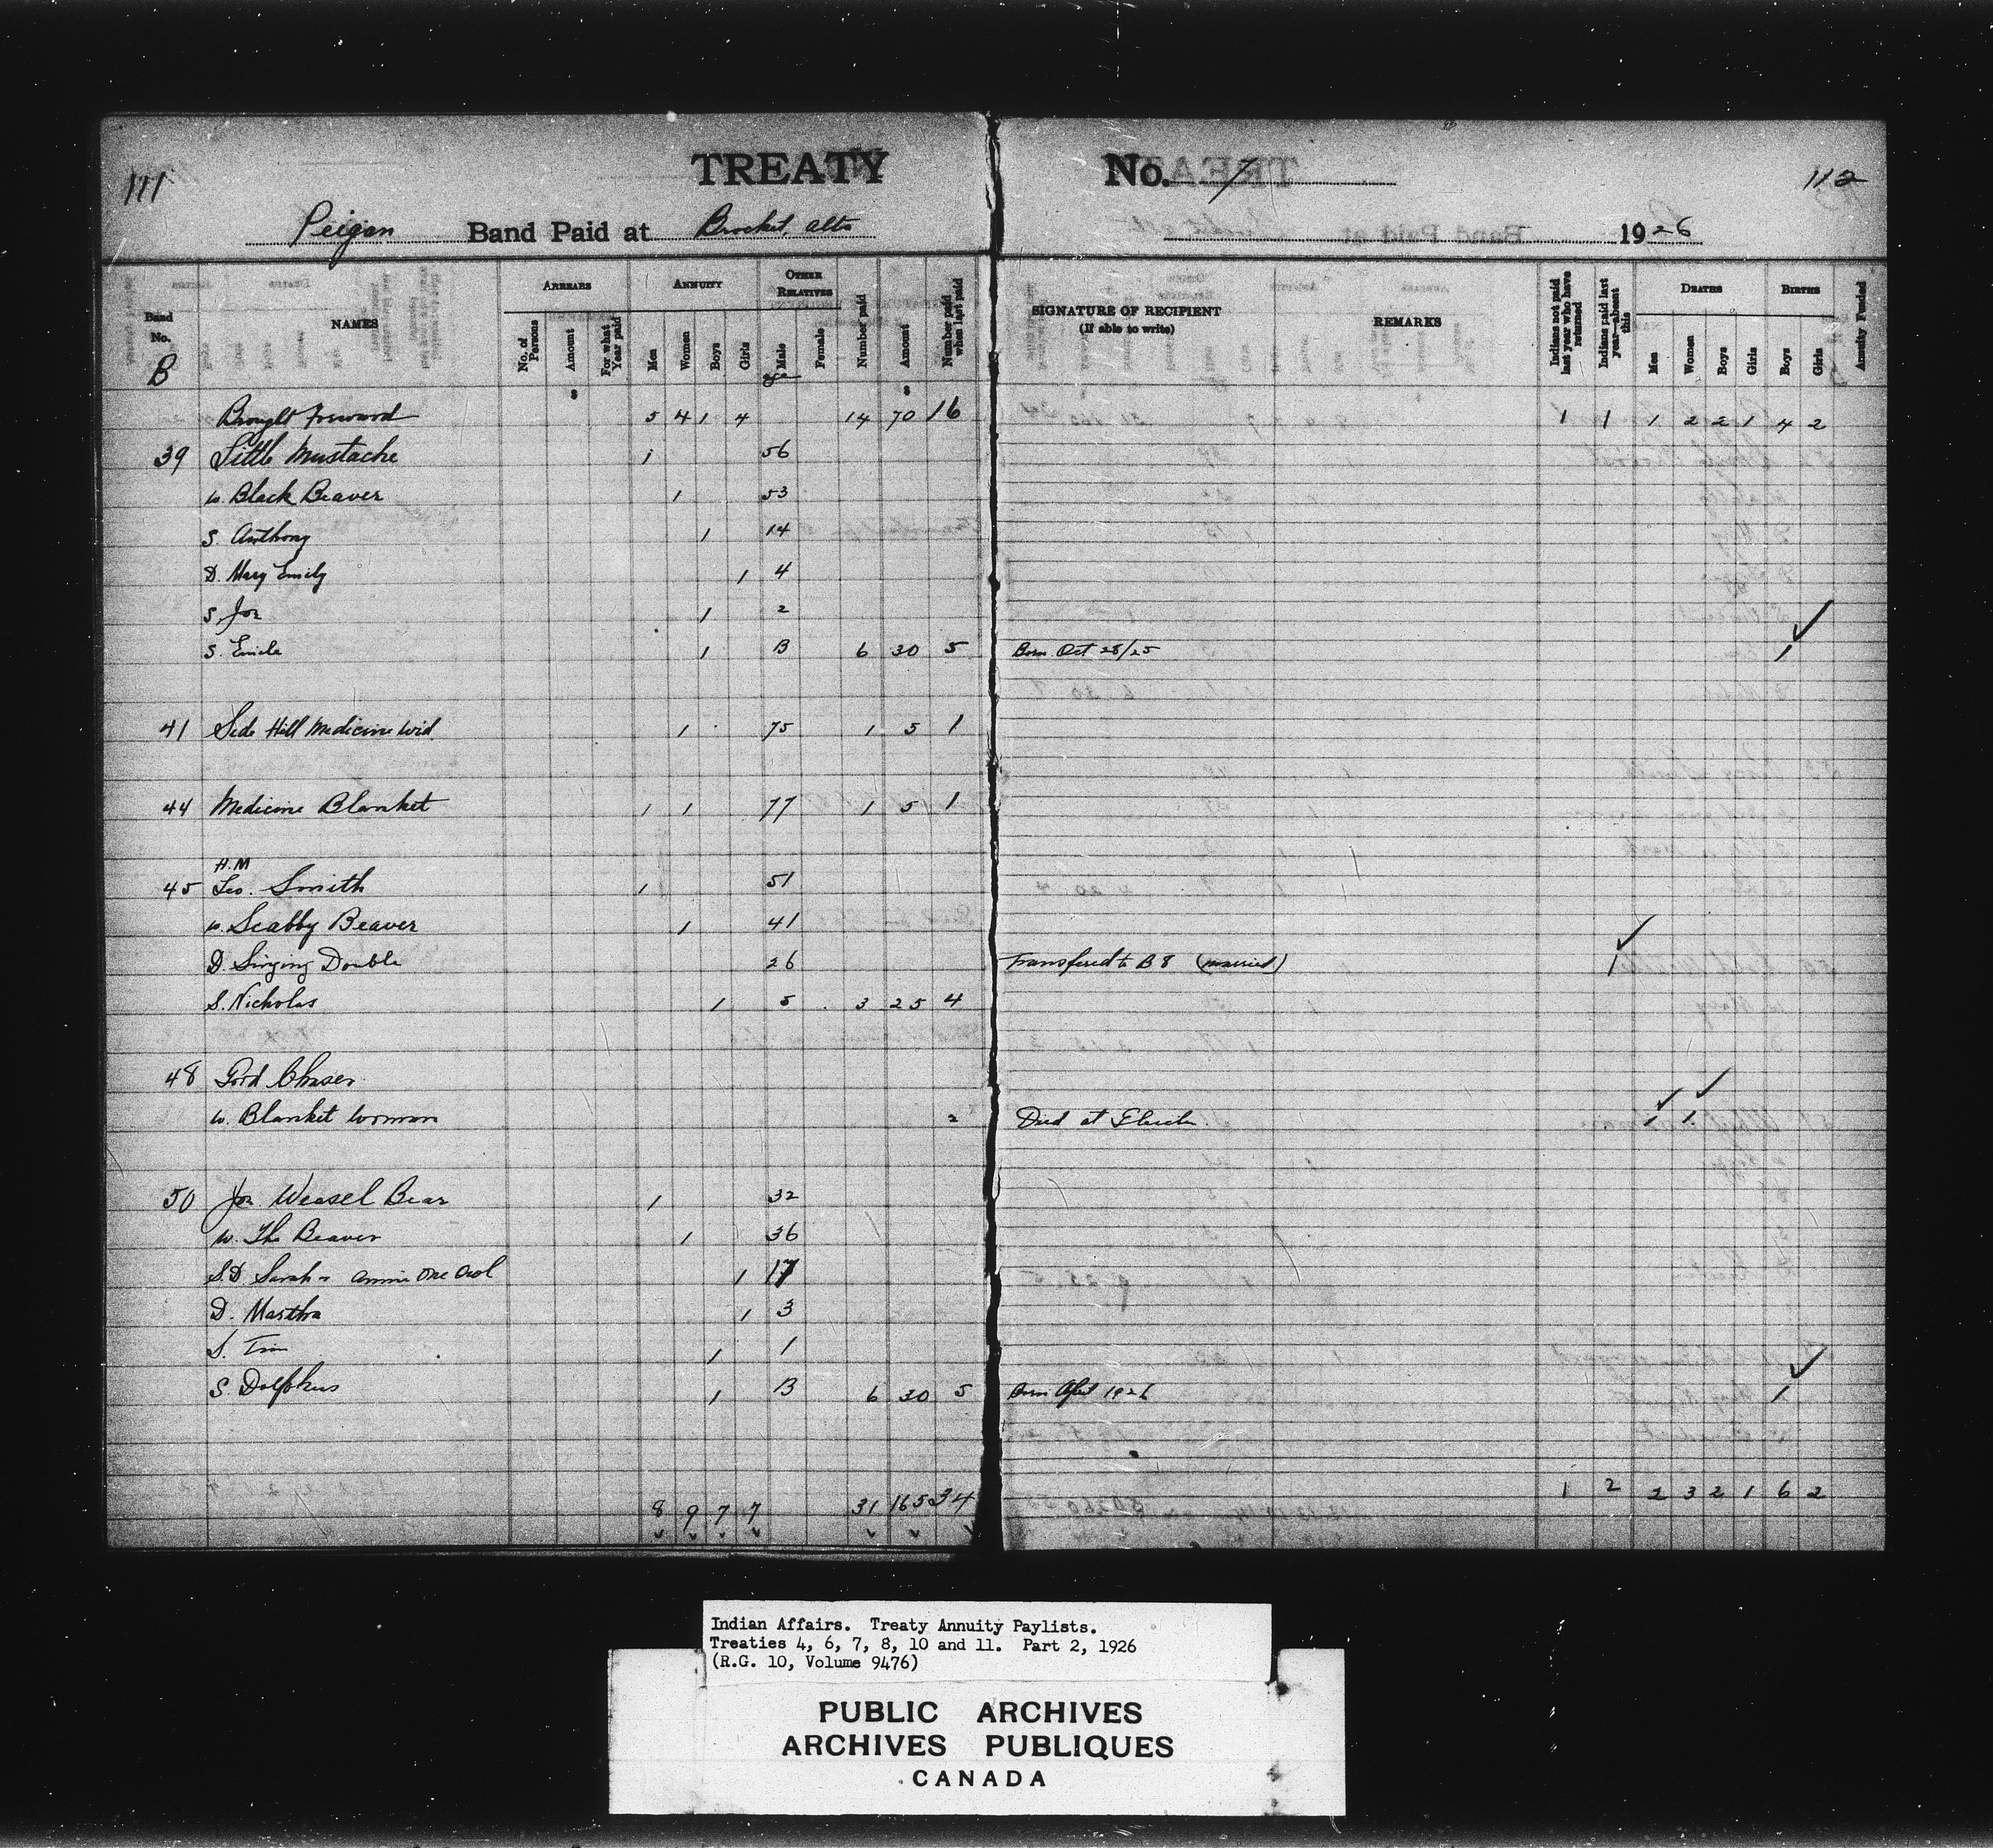 111 TREATY No. 7 112
Peigan Band Paid at Brocket, Alta 1926
Band No. NAMES ARREARS ANNUITY OTHER RELATIVES Number paid Amount Number paid when last paid SIGNATURE OF RECIPIENT (If able to write) REMARKS Indians not paid last year who have returned Indians paid last year—absent this DEATHS BIRTHS Annuity Funded
No. of Persons Amount For what Year paid Men Women Boys Girls Male Female Men Women Boys Girls Boys Girls
B $ age $
Brought Forward 5 4 1 4 14 70 16 1 1 1 2 2 1 4 2
39 Little Mustache 1 56
w. Black Beaver 1 53
S. Anthony 1 14
D. Mary Emily 1 4
S. Joe 1 2
S. Emile 1 B 6 30 5 Born Oct 28/25 1 ✓
41 Side Hill Medicine Wid. 1 75 1 5 1
44 Medicine Blanket 1 1 77 1 5 1
H.M
45 Geo. Smith 1 51
w. Scabby Beaver 1 41
D. Singing Double 26 Transfered to B 8 (married) 1 ✓
S. Nicholas 1 5 3 25 4
48 Chaser
w. Blanket Woman 2 Died at 1 ✓ 1 ✓
50 Joe Weasel Bear 1 32
w. The Beaver 1 36
S.D. Sarah - Annie One Owl 1 17
D. Martha 1 3
S. Tim 1 1
S. Dolphus 1 B 6 30 5 Born April 1926 1 ✓
8 9 7 7 31 165 34 1 2 2 3 2 1 6 2
Indian Affairs. Treaty Annuity Paylists.
Treaties 4, 6, 7, 8, 10 and 11. Part 2, 1926
(R.G. 10, Volume 9476)
PUBLIC ARCHIVES
ARCHIVES PUBLIQUES
CANADA